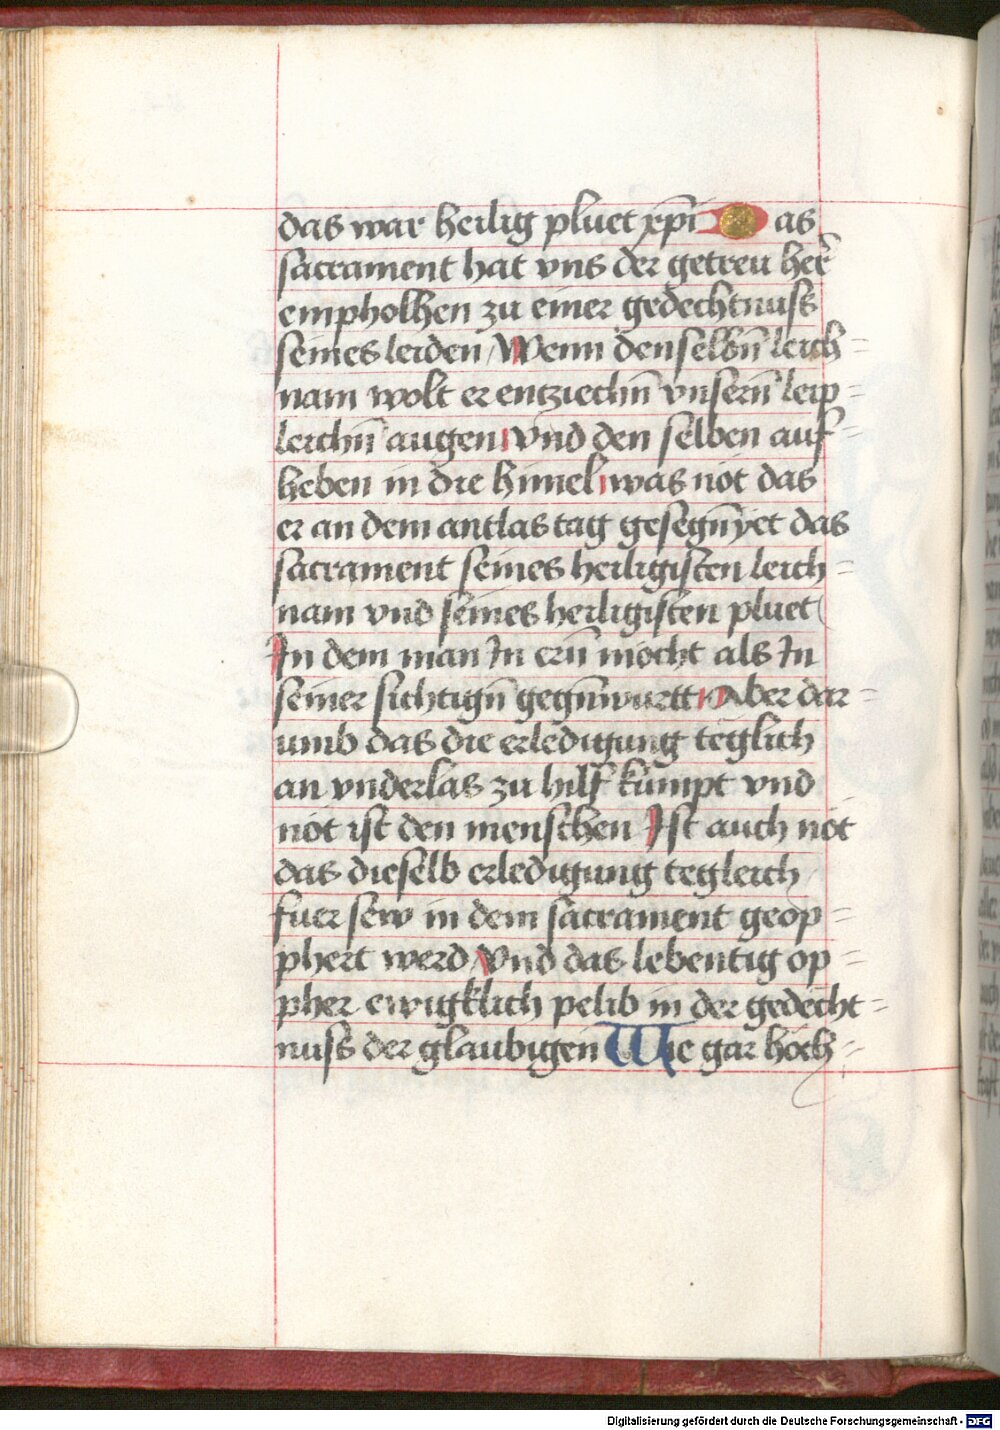 das war heilig pluet xp̄i Das
sacrament hat vns der getreu her̄
empholhen zu einer gedechtnuss
seines leiden / Wenn denselbn̄ leich=
nam wolt er entziechn̄ vnsern̄ leip=
leichn̄ augen vnd den selben auf=
heben in die himel was not das
er an dem antlastag gesegn̄yet das
sacrament seines heiligisten leich=
nam vnd seines heiligisten pluet
In dem man In ern̄ möcht als In
seiner sichtign̄ gegn̄wurtt Aber dar=
umb das die erledigung teglich
an vnderlas zu hilf kumpt vnd
not ist den menschen Ist auch nöt
das dieselb erledigung tegleich
fuer sew in dem sacrament geop=
phert werd / vnd das lebentig op=
pher ewigklich pelib in der gedecht=
nuss der glaubigen Wie gar hoch=
Digitalisierung gefördert durch die Deutsche Forschungsgemeinschaft - DFG